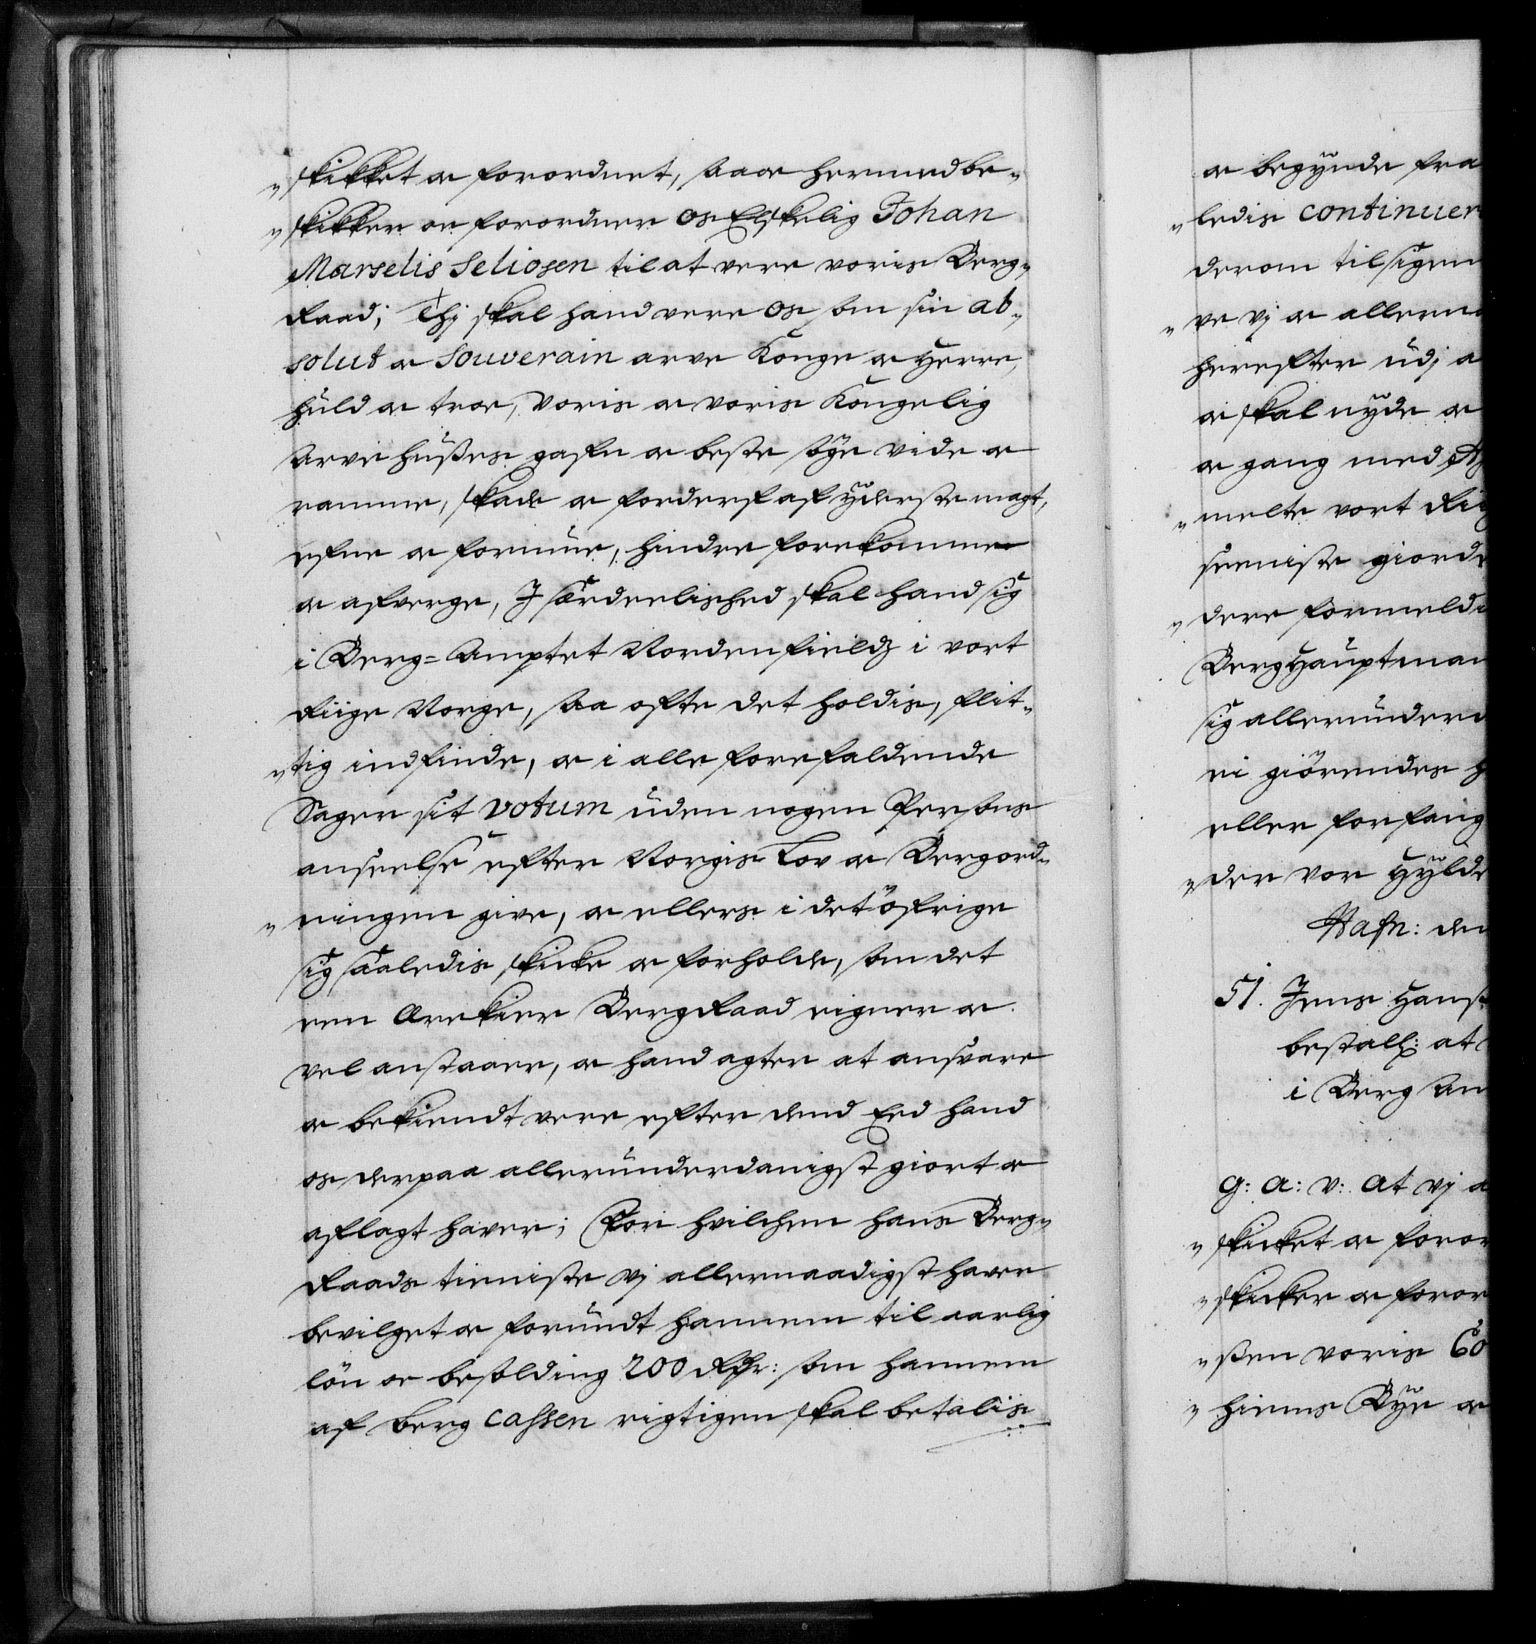 "skikket oc forordnet, saa oc hermed be„
"skikker oc forordner os Elskelig Johan
Marselis Seliosen til at vere voris Berg„
Raad; Thj skal hand vere os som sin ab„
solut oc Souverain arve Konge oc Herre,
huld oc troe, voris oc voris Kongelig
Arve Hußes gafn oc beste söge vide oc
ramme, skade oc forderf af yderste magt,
efne oc formue, hindre forekomme
oc afverge, J særdeelished skal hand sig
i Berg=Amptet Nordenfields i vort
Riige Norge, saa ofte det holdis, flit„
"tig indfinde, oc i alle forefaldende
Sager sit votum uden nogen Persons
anseelse efter Norgis Lov oc Bergord„
"ningen give, oc ellers i det öfrige
sig saaledis skicke oc forholde, som det
een Ærekier BergRaad eigner oc
vel anstaaer, oc hand agter at ansvare
oc bekiendt vere efter dend Eed hand
os derpaa allerunderdanigst giort oc
aflagt haver; For hvilchen hans Berg„
Raads tieniste vj allernaadigst have
bevilget oc forundt hannem til aarlig
lön oc besolding 200 Rdr: som hannem
af berg Cassen rigtigen skal betalis
oc begynde fra
"ledis continuer
derom tilsigen
"ve vj oc allern
herefter udj a
oc skal nyde oc
oc gang med
"melte vort Rig
tieniste giorde
"dere formelde
BergHauptman
sig allerundera
ei giörendes h
eller forfang
"der vor Hylde
Hafn: den
51. Jens Hans
bestall: at
i Berg Am
G: A: V: At vj a
"skicket oc foror
"skicker oc foror
"sten voris Co
"hiems Bye oc